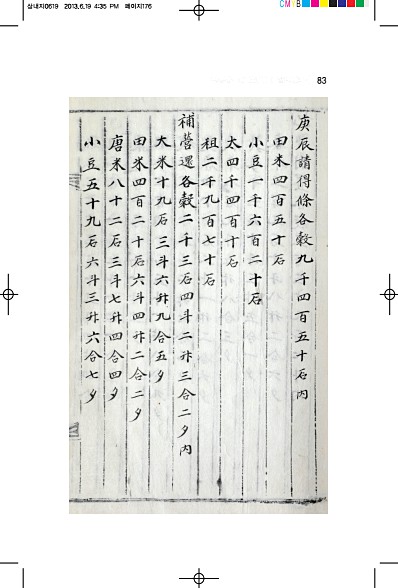 삼내지0619 2013.6.19 4:35 PM 페이지176
CMYB
83
庚辰請得條各穀九千四百五十石內
田米四百五十石
小豆一千六百二十石
太四千四百十石
租二千九百七十石
補營還各穀二千三石四斗二升三合二夕內
大米十九石三斗六升九合五夕
田米四百二十石六斗四升二合二夕
唐米八十二石三斗七升四合四夕
小豆五十九石六斗三升六合七夕